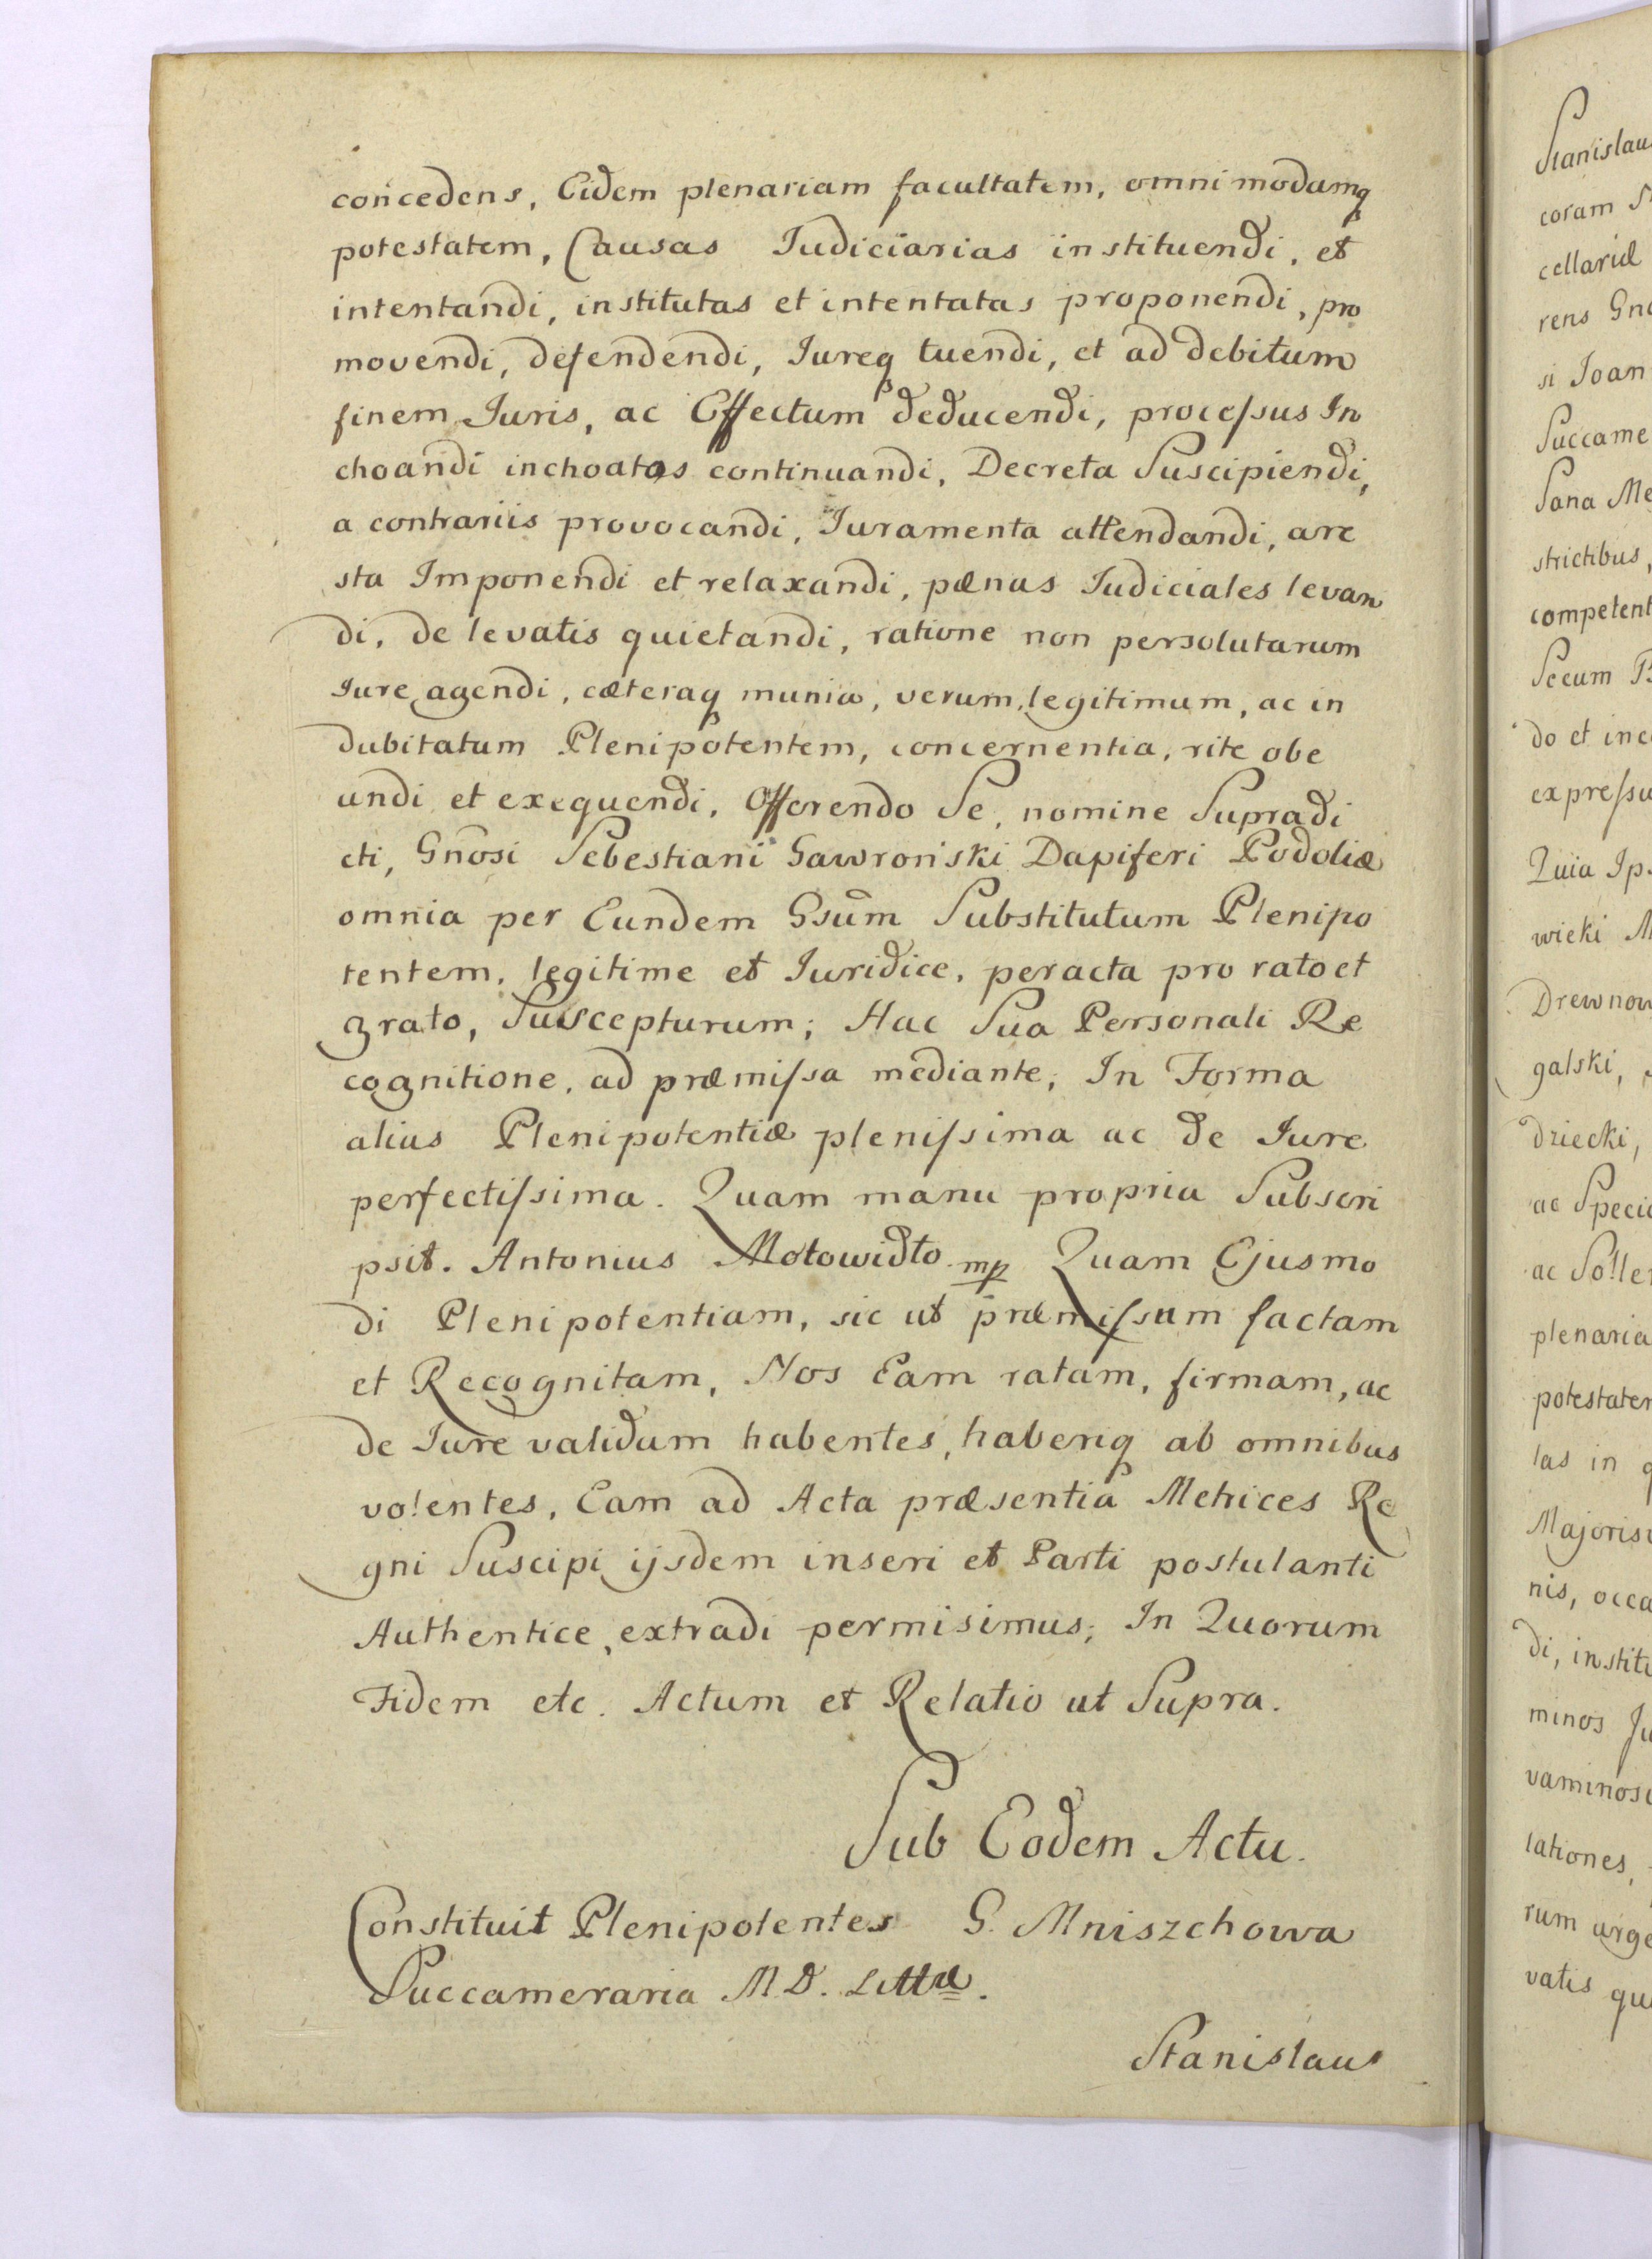 concedens, Eidem plenariam facultatem, omnimodamq
potestatem, Causas Judiciarias instituendi, et
intentandi, institutas et intentatas proponendi, pro
movendi, defendendi, Jureq tuendi, et ad debitum
finem Juris, ac Effectum deducendi, processus In
choandi inchoatos continuandi, Decreta Suscipiendi,
a contrariis provocandi, Juramenta attendandi, are
sta Imponendi et relaxandi, pænas Judiciales levan
di, de levatis quietandi, ratione non persolutarum
Jure agendi, cæteraq munia, verum, legitimum, ac in
dubitatum Plenipotentem, concernentia, rite obe
undi et exequendi, Offerendo Se, nomine Supradi
cti, Gnosi Sebestiani Gawroński Dapiferi Podoliæ
omnia per Eundem Gsum Substitutum Plenipo
tentem, legitime et Juridice, peracta pro rato et
grato, Suscepturum; Hac Sua Personali Re
cognitione, ad præmissa mediante, In Forma
alias Plenipotentiæ plenissima ac de Jure
perfectissima. Quam manu propria Subscri
psit. Antonius Motowidło mp Quam Ejusmo
di Plenipotentiam, sic ut præmissum factam
et Recognitam, Nos Eam ratam, firmam, ac
de Jure validam habentes, haberiq ab omnibus
volentes, Eam ad Acta præsentia Metrices Re
gni Suscipi ijsdem inseri et Parti postulanti
Authentice, extradi permisimus; In Quorum
Fidem etc. Actum et Relatio ut Supra.
Sub Eodem Actu.
Constituit Plenipotentes G. Mniszchowa
Succameraria M D. Littæ.
Stanislaus
Stanislau
coram
cellariæ
rens
si Joan
Succame
Sana
strictibus,
competent
Secum
do et inc
expressu
Quia Ip
wieki
Drewnow
galski,
dziecki,
ac Speci
ac Soller
plenaria
potestatem
las in
Majoris
nis, occa
di, institu
minos Ju
vaminos
lationes,
rum urge
vatis qui